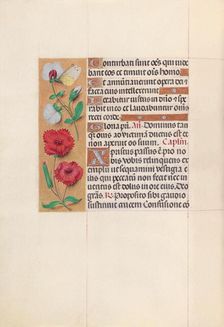 Conturbati sunt oēs qui vide
bant eos et timuit oīs homo.
Et annūtiaverunt opera dei
et facta
Letabitur iustus in dño et spe
rabit
Gloria pri. Añ. Dominus tan
quam ovis ad victimā ductus est et
non aperuit os suum. Caplm
Xpristus passus ē pro no
bis vobis relinquens ex
emplum ut sequamini vestigia e
ius qui peccatū non fecit nec in
ventus est dolus in ore eius. Deo
gras. R. Proposito sibi gaudi
sustinuit crucem Confusione cō